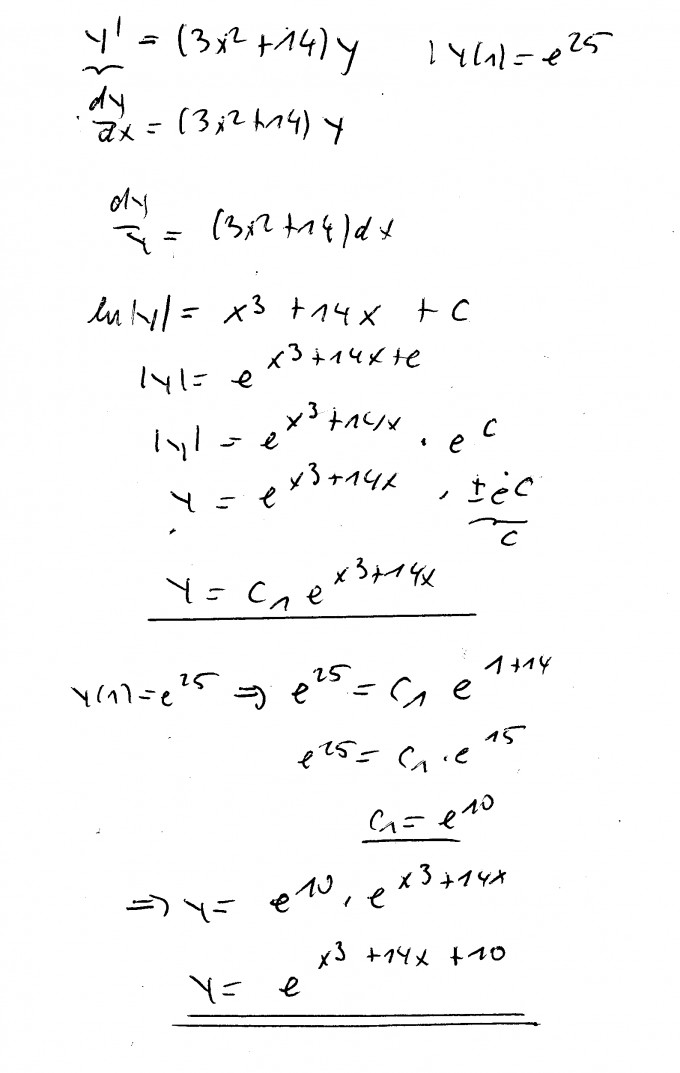 y' = (3x² + 14) y | y(1) = e^25
dy/dx = (3x² + 14) y
dy/y = (3x² + 14) dx
ln|y| = x³ + 14x + C
|y| = e^(x³ + 14x + e)
|y| = e^(x³ + 14x) · e^C
y = e^(x³ + 14x) · ± e^C
C
y = C₁ e^(x³ + 14x)
y(1) = e^25 ⇒ e^25 = C₁ e^(1 + 14)
e^25 = C₁ · e^15
C₁ = e^10
⇒ y = e^10 · e^(x³ + 14x)
y = e^(x³ + 14x + 10)